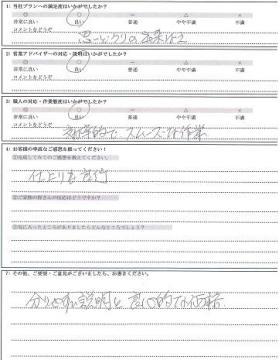 1) 当社プランへの満足度はいかがでしたか？
◎ ○ □ △ ×
非常に良い 良い 普通 やや不満 不満
コメントをどうぞ
思ったとうりの出来ばえ
2) 営業アドバイザーの対応・説明はいかがでしたか？
◎ ○ □ △ ×
非常に良い 良い 普通 やや不満 不満
コメントをどうぞ
3) 職人の対応・作業態度はいかがでしたか？
◎ ○ □ △ ×
非常に良い 良い 普通 やや不満 不満
コメントをどうぞ
的で スムーズな作業
4) お客様の率直なご感想を綴ってください！
①完成してみてのご感想を教えてください。
仕上りも良好
②ご家族の皆さんの反応はどうですか？
③気に入ったところがありましたらどんなところでしょう？
7) その他、ご要望・ご意見がございましたら、お書きください。
説明と 良心的な価格